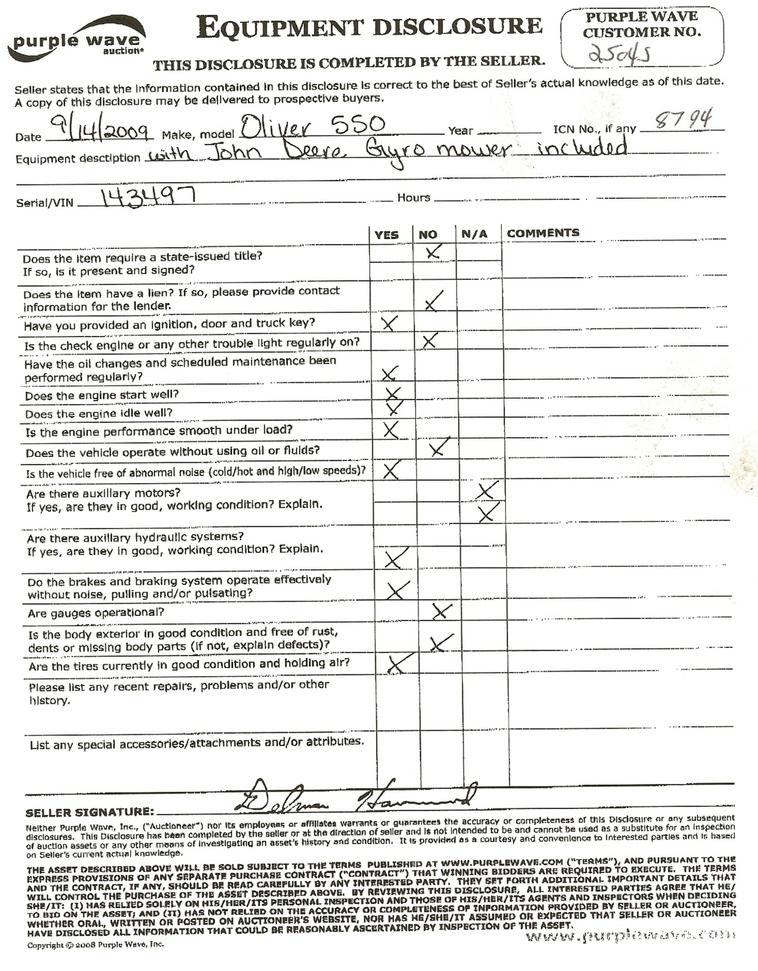 purple wave
auction®
EQUIPMENT DISCLOSURE
THIS DISCLOSURE IS COMPLETED BY THE SELLER.
PURPLE WAVE
CUSTOMER NO.
25045
Seller states that the information contained in this disclosure is correct to the best of Seller's actual knowledge as of this date.
A copy of this disclosure may be delivered to prospective buyers.
Date 9/14/2009 Make, model Oliver 550 Year ICN No., if any 8794
Equipment desctiption with John Deere Gyro mower included
Serial/VIN 143497 Hours
YES NO N/A COMMENTS
Does the item require a state-issued title? X
If so, is it present and signed?
Does the item have a lien? If so, please provide contact
information for the lender. X
Have you provided an ignition, door and truck key? X
Is the check engine or any other trouble light regularly on? X
Have the oil changes and scheduled maintenance been
performed regularly? X
Does the engine start well? X
Does the engine idle well? X
Is the engine performance smooth under load? X
Does the vehicle operate without using oil or fluids? X
Is the vehicle free of abnormal noise (cold/hot and high/low speeds)? X
Are there auxillary motors? X
If yes, are they in good, working condition? Explain. X
Are there auxillary hydraulic systems?
If yes, are they in good, working condition? Explain. X
Do the brakes and braking system operate effectively
without noise, pulling and/or pulsating? X
Are gauges operational? X
Is the body exterior in good condition and free of rust,
dents or missing body parts (if not, explain defects)? X
Are the tires currently in good condition and holding air? X
Please list any recent repairs, problems and/or other
history.
List any special accessories/attachments and/or attributes.
SELLER SIGNATURE:
Neither Purple Wave, Inc., ("Auctioneer") nor its employees or affiliates warrants or guarantees the accuracy or completeness of this Disclosure or any subsequent
disclosures. This Disclosure has been completed by the seller or at the direction of seller and is not intended to be and cannot be used as a substitute for an inspection
of auction assets or any other means of investigating an asset's history and condition. It is provided as a courtesy and convenience to interested parties and is based
on Seller's current actual knowledge.
THE ASSET DESCRIBED ABOVE WILL BE SOLD SUBJECT TO THE TERMS PUBLISHED AT WWW.PURPLEWAVE.COM ("TERMS"), AND PURSUANT TO THE
EXPRESS PROVISIONS OF ANY SEPARATE PURCHASE CONTRACT ("CONTRACT") THAT WINNING BIDDERS ARE REQUIRED TO EXECUTE. THE TERMS
AND THE CONTRACT, IF ANY, SHOULD BE READ CAREFULLY BY ANY INTERESTED PARTY. THEY SET FORTH ADDITIONAL IMPORTANT DETAILS THAT
WILL CONTROL THE PURCHASE OF THE ASSET DESCRIBED ABOVE. BY REVIEWING THIS DISCLOSURE, ALL INTERESTED PARTIES AGREE THAT HE/
SHE/IT: (I) HAS RELIED SOLELY ON HIS/HER/ITS PERSONAL INSPECTION AND THOSE OF HIS/HER/ITS AGENTS AND INSPECTORS WHEN DECIDING
TO BID ON THE ASSET; AND (II) HAS NOT RELIED ON THE ACCURACY OR COMPLETENESS OF INFORMATION PROVIDED BY SELLER OR AUCTIONEER,
WHETHER ORAL, WRITTEN OR POSTED ON AUCTIONEER'S WEBSITE, NOR HAS HE/SHE/IT ASSUMED OR EXPECTED THAT SELLER OR AUCTIONEER
HAVE DISCLOSED ALL INFORMATION THAT COULD BE REASONABLY ASCERTAINED BY INSPECTION OF THE ASSET.
www.purplewave.com
Copyright © 2008 Purple Wave, Inc.